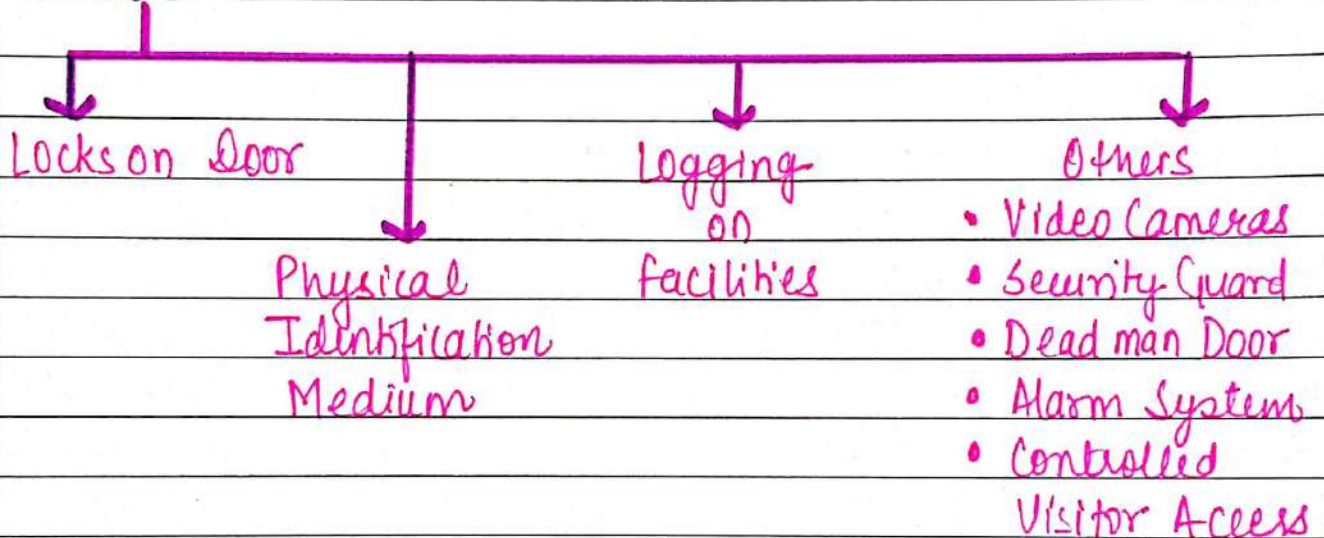 Locks on Door
Physical
Identification
Medium
Logging
on
facilities
Others
• Video Cameras
• Security Guard
• Dead man Door
• Alarm System
• Controlled
Visitor Access